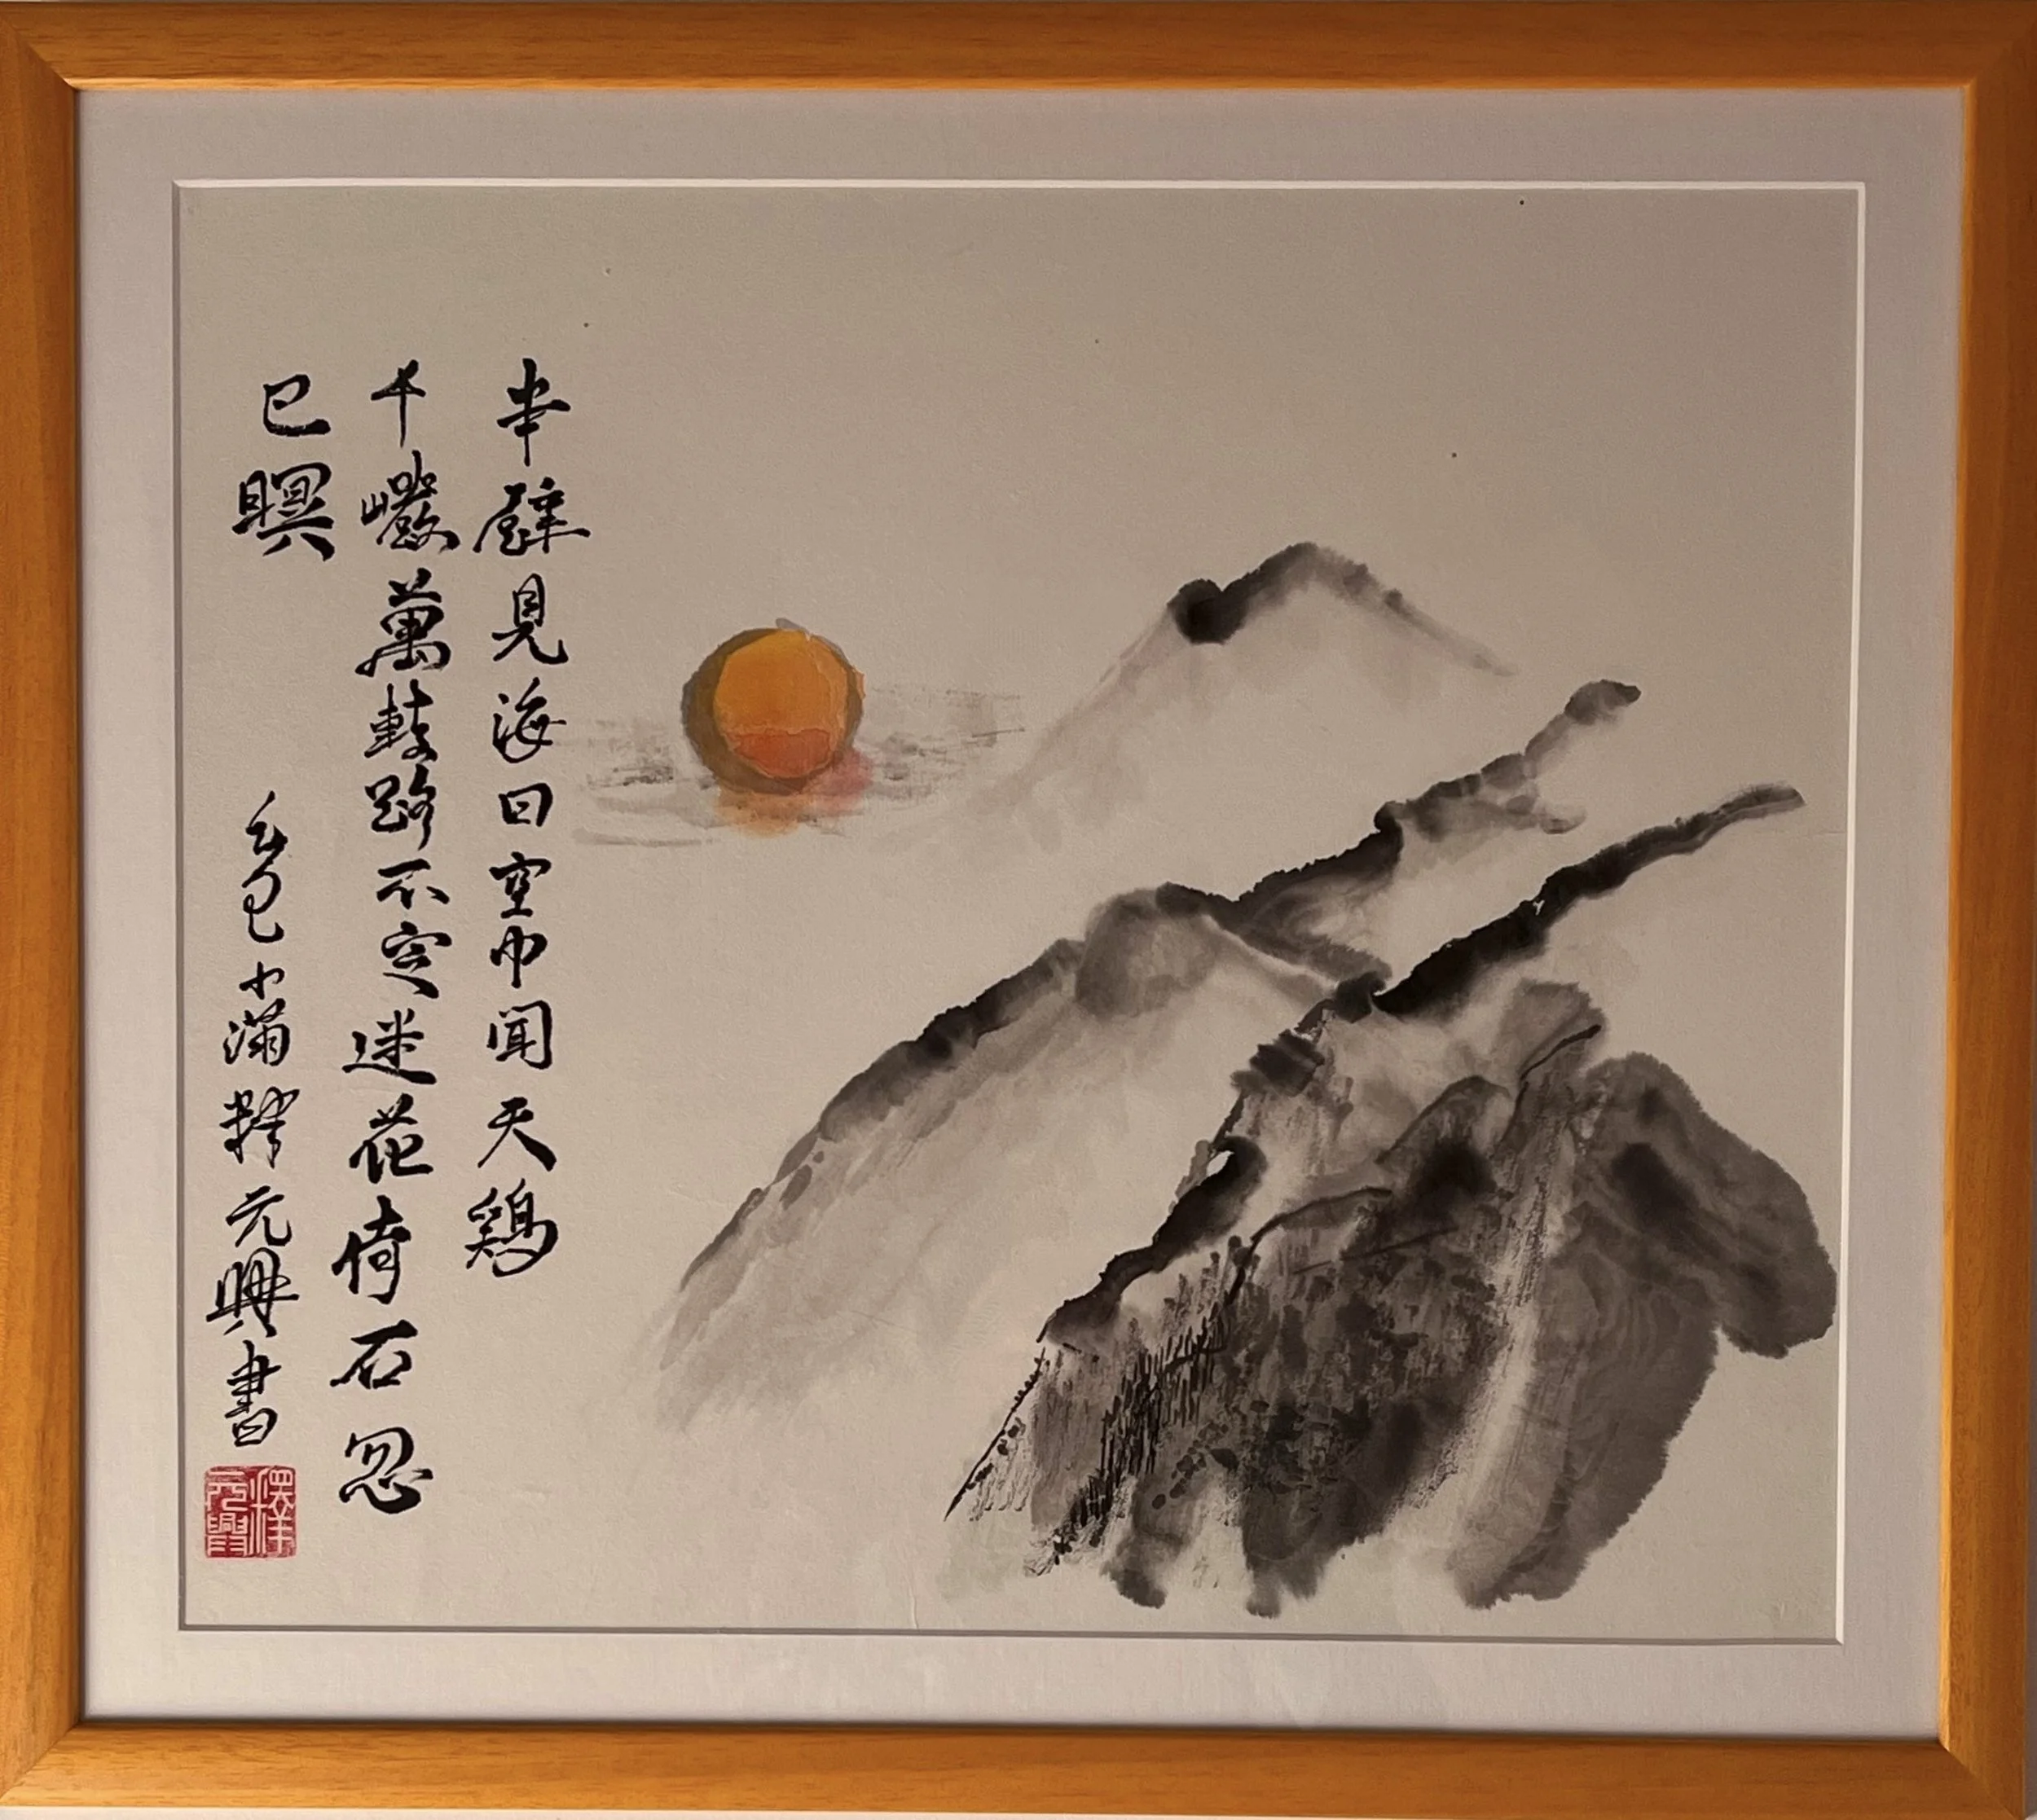 半壁見海日空中聞天鷄
千巖萬轉路不定迷花倚石忽
已瞑
乙巳小滿釋元興書